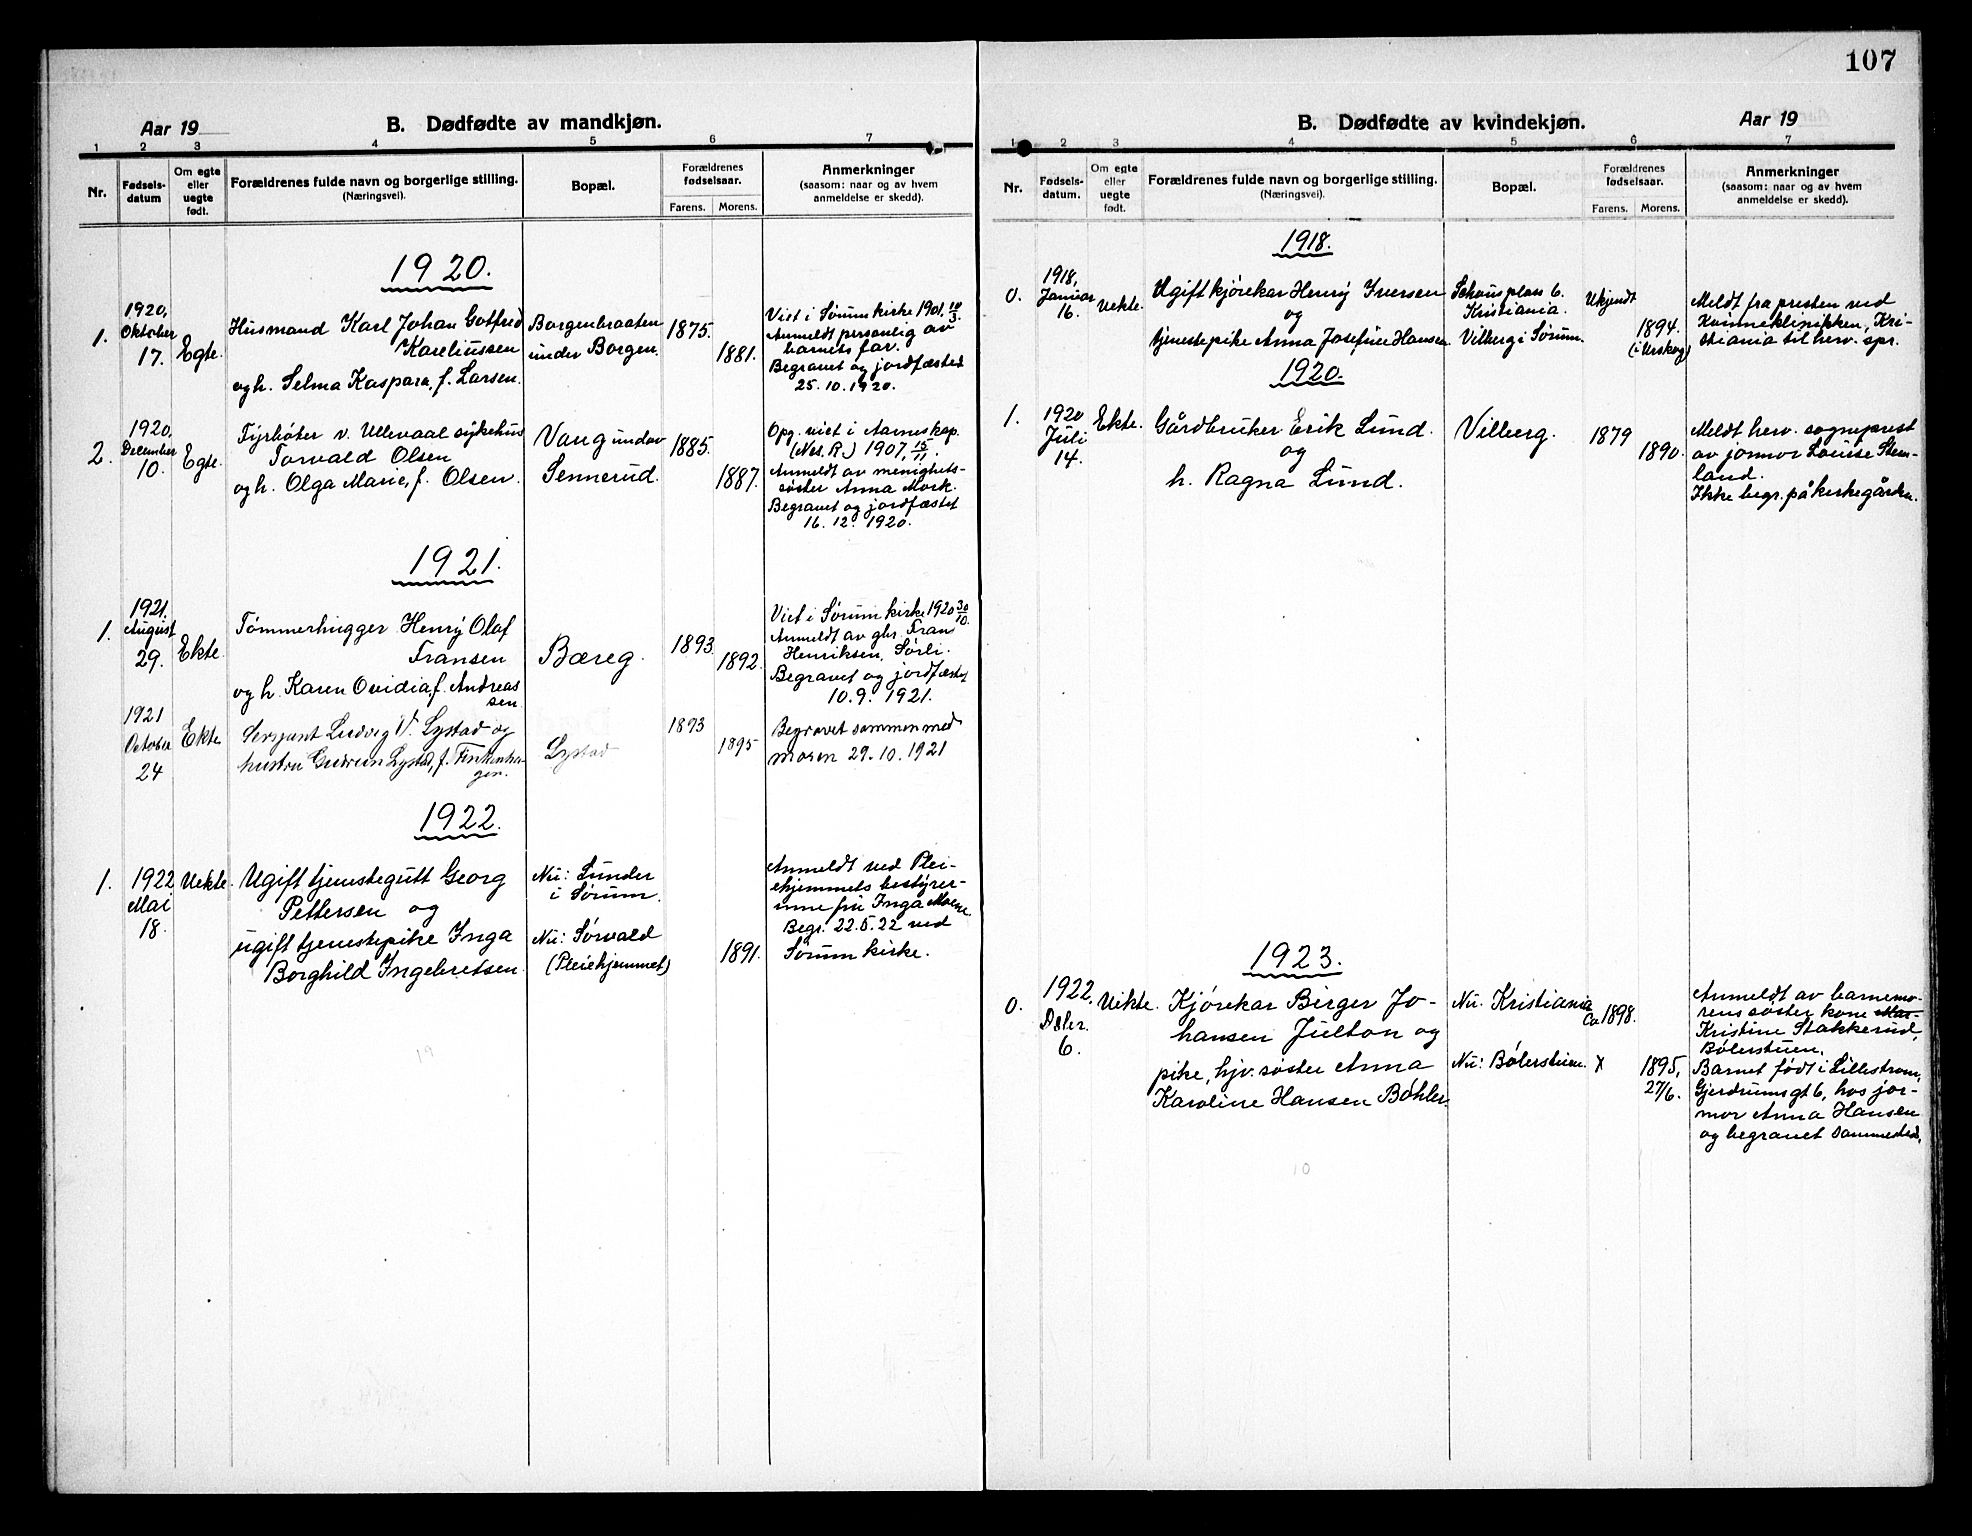 107
Aar 19
B. Dødfødte av mandkjøn.
1 2 3 4 5 6 7
Nr.
Fødsels-
datum
Om egte
eller
uegte
født.
Forældrenes fulde navn og borgerlige stilling.
(Næringsvei).
Bopæl.
Forældrenes
fødselsaar.
Farens. Morens.
Anmerkninger
(saasom: naar og av hvem
anmeldelse er skedd).
1920.
1.
1920,
Oktober
17.
Egte.
Husmand Karl Johan Gotfred
Kareliussen
og h. Selma Kaspara, f. Larsen.
Borgenbraaten
under Borgen.
1875.
1881.
Viet i Sørum kirke 1901. 10/3.
Anmeldt personlig av
barnets far.
Begravet og jordfæstet
25.10.1920.
2.
1920,
December
10.
Egte.
Fyrbøter v. Ullevaal sykehus
Torvald Olsen
og h. Olga Marie, f. Olsen.
Vang under
Sennerud.
1885.
1887.
Opg. viet i Aarnes kap.
(Nes. R.) 1907, 15/11.
Anmeldt av menighets-
søster Anna Mork.
Begravet og jordfæstet
16.12.1920.
1921.
1.
1921.
August
29.
Ekte.
Tømmerhugger Henry Olaf
Fransen
og h. Karen Ovidia, f. Andreas
sen.
Bæreg.
1893.
1892.
Viet i Sørum kirke 1920 30/10.
Anmeldt av gbr. Frans
Henriksen, Sørli.
Begravet og jordfæstet
10.9.1921.
1921
October
24
Ekte
Sersjant Ludvig V. Lystad og
hustru Gudrun Lystad, f. Finkenha-
gen.
Lystad
1893
1895
Begravet sammen med
moren 29.10.1921
1922.
1.
1922
Mai
18.
Uekte.
Ugift tjenestegutt Georg
Pettersen og
ugift tjenestepike Inga
Borghild Ingebretsen.
Nu: Lunder
i Sørum.
Nu: Sørvald
(Pleiehjemmet)
1891.
Anmeldt ved Plei-
ehjemmets bestyrer-
inne frü Inga Moene.
Begr. 22.5.22 ved
Sørum kirke.
19
B. Dødfødte av kvindekjøn.
Aar 19
1 2 3 4 5 6 7
Nr.
Fødsels-
datum.
Om egte
eller
uegte
født.
Forældrenes fulde navn og borgerlige stilling.
(Næringsvei).
Bopæl.
Forældrenes
fødselsaar.
Farens. Morens.
Anmerkninger
(saasom: naar og av hvem
anmeldelse er skedd).
1918.
0.
1918,
Januar
16.
Uekte.
Ugift kjørekar Henry Iversen
og
tjenestepike Anna Josefine Hansen
Schousplass 6.
Kristiania.
Vilberg i Sørum.
Ukjendt
1894.
(i Urskog)
Meldt fra presten ved
Kvinneklinikken, Kri-
stiania til herv. spr.
1920.
1.
1920
Juli
14.
Ekte.
Gårdbruker Erik Lund.
og
h. Ragna Lund.
Vilberg.
1879
1890.
Meldt herv. sogneprest
av jormor Louise Stem-
land.
Ikke begr. på kirkegården.
1923.
0.
1922.
Dsbr.
6.
Uekte.
Kjørekar Birger Jo-
hansen Julton og
pike, hjv. søster Anna
Karoline Hansen Bøhler.
Nu. Kristiania
Nu: Bølerstuen.
Ca 1898.
X
1895,
27/6.
Anmeldt av barnemo-
rens søster kone Mar-
Kristine Stakkerud,
Bølerstuen.
Barnet født i Lillestrøm,
Gjerdrumsgt 6, hos jor-
mor Anna Hansen
og begravet sammesteds.
10